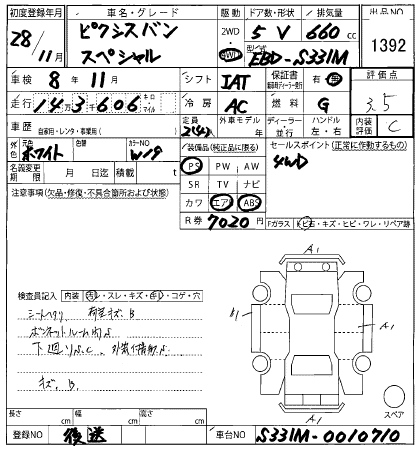 初度登録年月 車名・グレード 駆動 ドア数・形状 排気量 出品NO
28/11月 ピクシスバン スペシャル 2WD 4WD 5 V 660 cc 1392
型式 EBD-S331M
車検 8年11月 シフト IAT 保証書 有 無 評価点
走行 143,606 キロ・マイル 冷房 AC 燃料 G 3.5
車歴 自家用・レンタ・事業用( ) 定員 2(4)人 外車モデル 年 ディーラー・並行 ハンドル 左・右 内装評価 C
外色 元色 ホワイト 色替 カラーNO W19 装備品(純正品に限る) セールスポイント(正常に作動するもの)
名義変更期限 月 日迄 積載 t PS PW AW 4WD
注意事項(欠品・修復・不具合箇所および状態) SR TV ナビ
カワ エアB ABS
R券 7020円 Fガラス Xヒビ・キズ・ヒビ・ワレ・リペア跡
A1
検査員記入 内装 汚レ・スレ・キズ・コゲ・穴
シートヘタリ 荷室キズ、B
ボンネットルーム内S
下廻りS.C、
キズ、B、
A1
A1
スペア
長さ cm 幅 cm 高さ cm
登録NO 後送 車台NO S331M-0010710